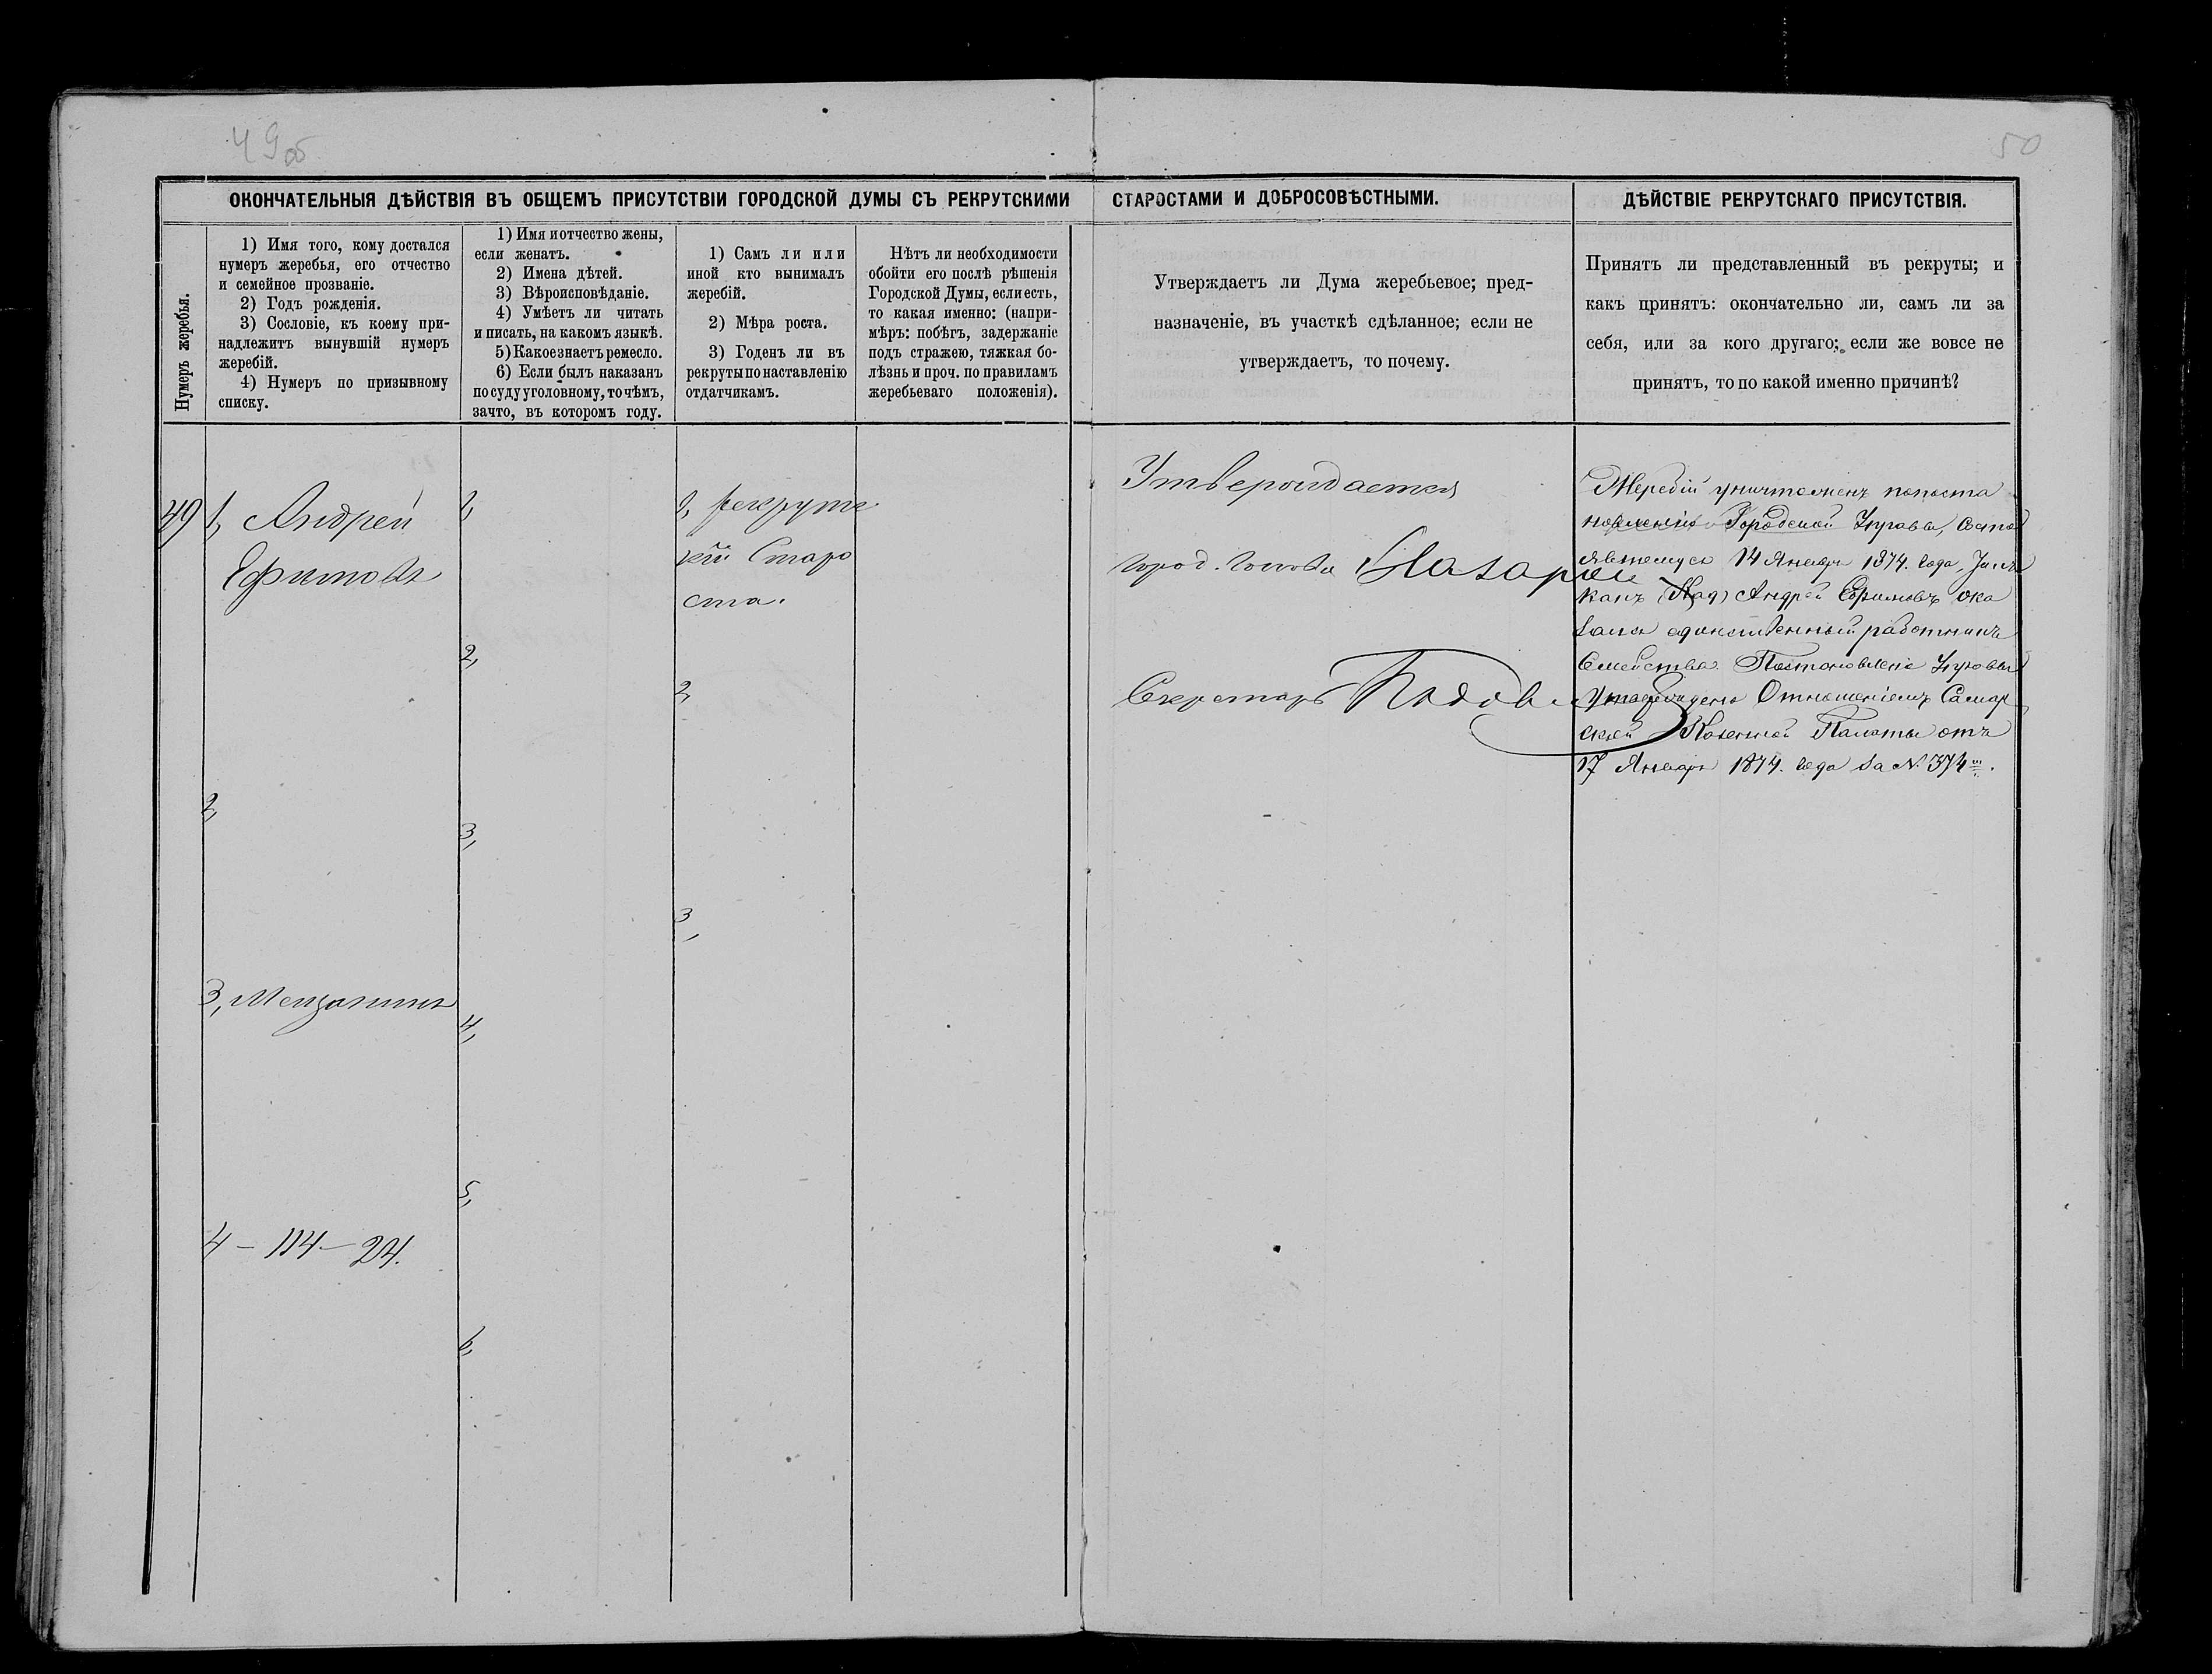 49 об
50
ОКОНЧАТЕЛЬНЫЯ ДѢЙСТВІЯ ВЪ ОБЩЕМЪ ПРИСУТСТВІИ ГОРОДСКОЙ ДУМЫ СЪ РЕКРУТСКИМИ СТАРОСТАМИ И ДОБРОСОВѢСТНЫМИ.
ДѢЙСТВІЕ РЕКРУТСКАГО ПРИСУТСТВІЯ.
Нумеръ жеребья.
1) Имя того, кому достался
нумеръ жеребья, его отчество
и семейное прозваніе.
2) Годъ рожденія.
3) Сословіе, къ коему при-
надлежитъ вынувшій нумеръ
жеребій.
4) Нумеръ по призывному
списку.
1) Имя и отчество жены,
если женатъ.
2) Имена дѣтей.
3) Вѣроисповѣданіе.
4) Умѣетъ ли читать
и писать, на какомъ языкѣ.
5) Какое знаетъ ремесло.
6) Если былъ наказанъ
по суду уголовному, то чѣмъ,
за что, въ которомъ году.
1) Самъ ли или
иной кто вынималъ
жеребій.
2) Мѣра роста.
3) Годенъ ли въ
рекруты по наставленію
отдатчикамъ.
Нѣтъ ли необходимости
обойти его послѣ рѣшенія
Городской Думы, если есть,
то какая именно: (напри-
мѣръ: побѣгъ, задержаніе
подъ стражею, тяжкая бо-
лѣзнь и проч. по правиламъ
жеребьеваго положенія).
Утверждаетъ ли Дума жеребьевое; пред-
назначеніе, въ участкѣ сдѣланное; если не
утверждаетъ, то почему.
Принятъ ли представленный въ рекруты; и
какъ принятъ: окончательно ли, самъ ли за
себя, или за кого другаго; если же вовсе не
принятъ, то по какой именно причинѣ?
49
1, Андрей
Ефимовъ
2,
3, Мещанинъ
4 – 114 – 24.
1,
2,
3,
4,
5,
6,
1, рекрутс
кій Старо
ста.
2,
3,
Утверждается
Город. Голова
Секретарь
Жеребій уничтоженъ по поста
новленію Городской Управы, состо
явшемуся 14 Января 1874. года,
Андрей Ефимовъ ока
зался единственный работникъ
Семейства. Постановленіе Управы
утверждено Отношеніемъ Самар
ской Казенной Палаты отъ
17 Января 1874. года за № 374.